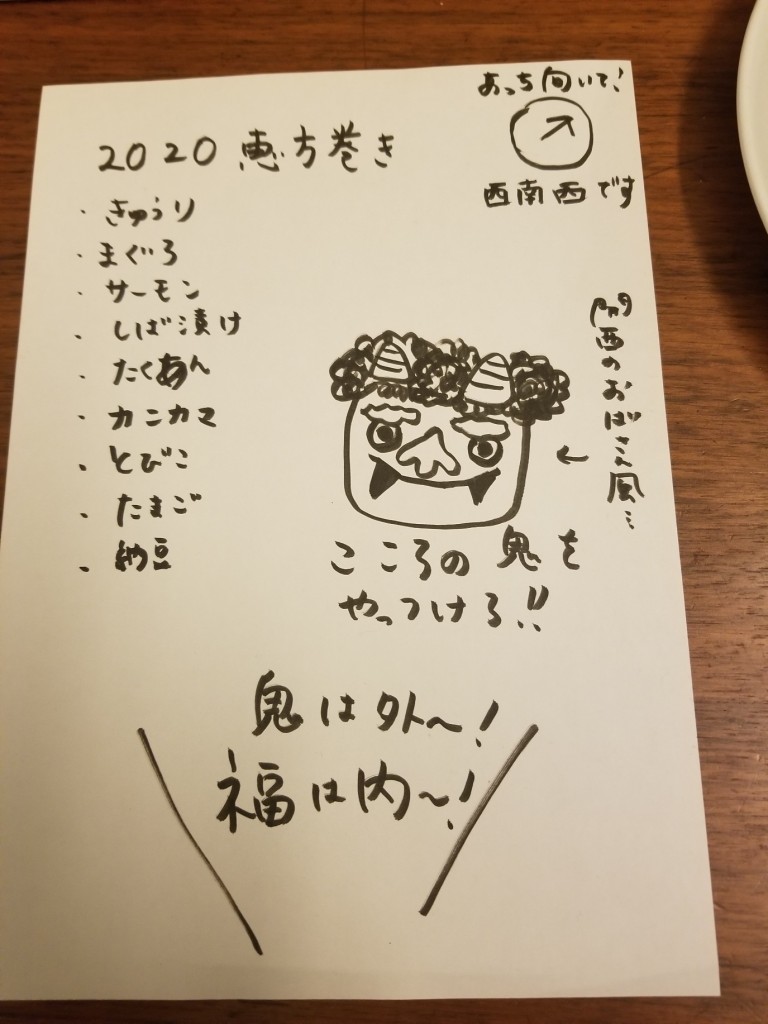 あっち向いて!
2020 恵方巻き
西南西です
・きゅうり
・まぐろ
・サーモン
・しば漬け
・たくあん
・カニカマ
・とびこ
・たまご
・納豆
関西のおばさん風…
←
こころの鬼を
やっつけろ!!
鬼は外〜!
福は内〜!